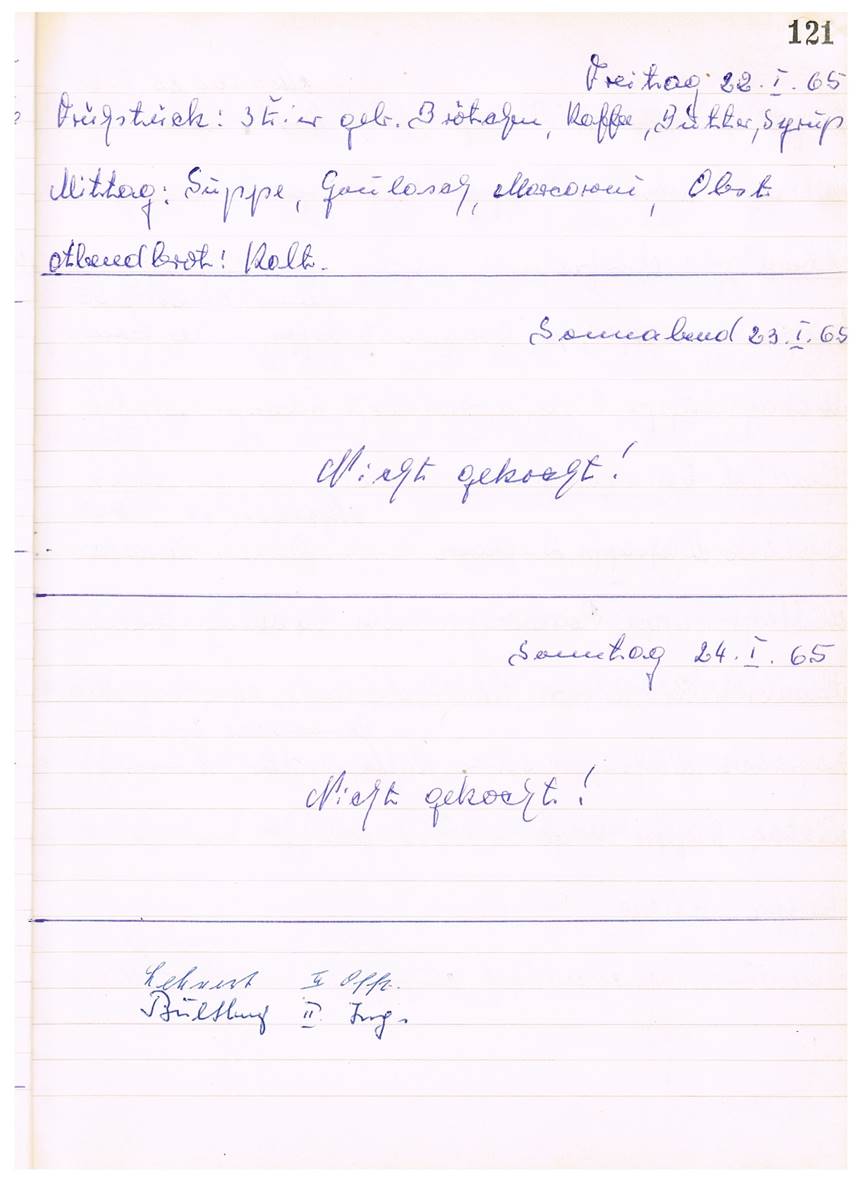 121
Freitag 22. I. 65
Frühstück: 3 Eier gek. Brötchen, Kaffe, Butter, Syrup
Mittag: Suppe, Goulasch, Maccaroni, Obst
Abendbrot: Kalt.
Sonnabend 23. I. 65
Nicht gekocht!
Sonntag 24. I. 65
Nicht gekocht!
Lehnert Offz.
II Ing.